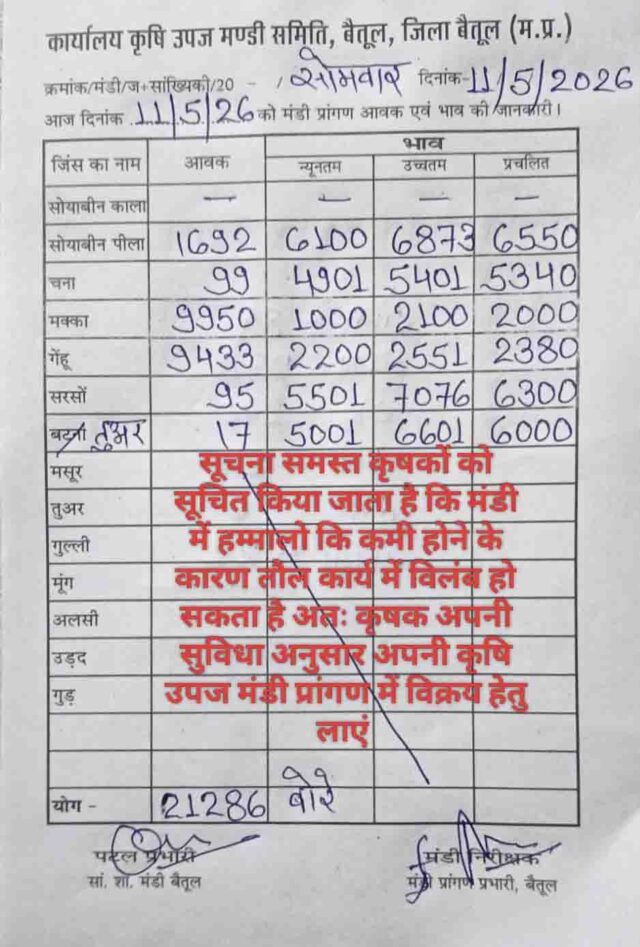 कार्यालय कृषि उपज मण्डी समिति, बैतूल, जिला बैतूल (म.प्र.)
क्रमांक/मंडी/ज+सांख्यिकी/20 - / सोमवार दिनांक-11/5/2026
आज दिनांक 11/5/26 को मंडी प्रांगण आवक एवं भाव की जानकारी।
जिंस का नाम आवक भाव
न्यूनतम उच्चतम प्रचलित
सोयाबीन काला — — — —
सोयाबीन पीला 1692 6100 6873 6550
चना 99 4901 5401 5340
मक्का 9950 1000 2100 2000
गेंहू 9433 2200 2551 2380
सरसों 95 5501 7076 6300
बटना तुअर 17 5001 6601 6000
मसूर सूचना समस्त कृषकों को
तुअर सूचित किया जाता है कि मंडी
गुल्ली में हम्मालो कि कमी होने के
मूंग कारण तौल कार्य में विलंब हो
अलसी सकता है अतः कृषक अपनी
उड़द सुविधा अनुसार अपनी कृषि
गुड़ उपज मंडी प्रांगण में विक्रय हेतु
लाएं
योग - 21286 बोरे
पटल प्रभारी मंडी निरीक्षक
सां. शा. मंडी बैतूल मंडी प्रांगण प्रभारी, बैतूल